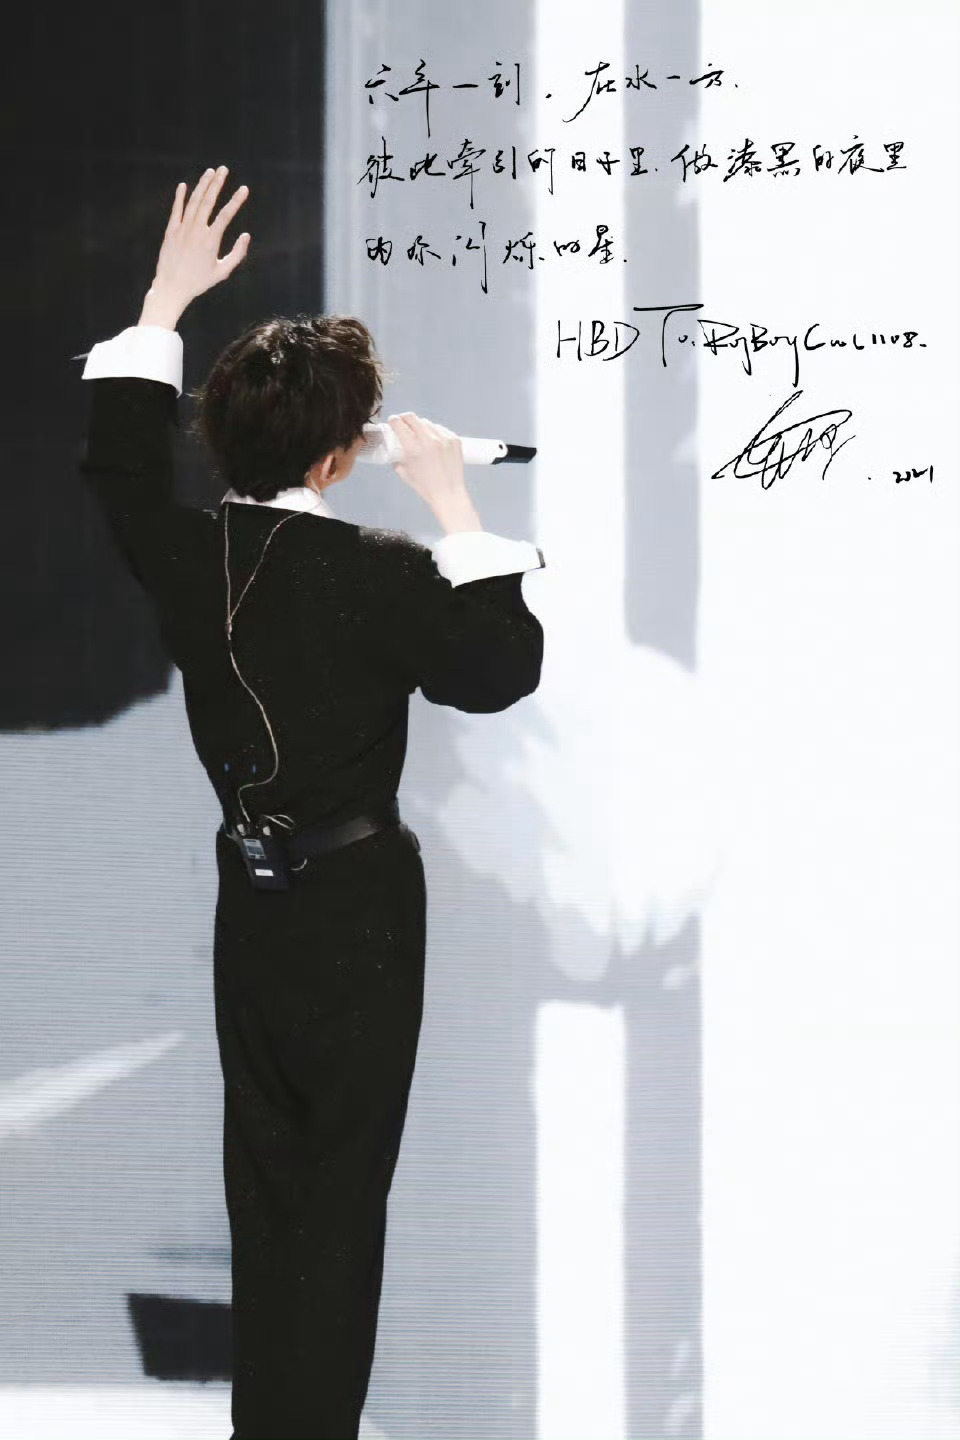 六年一刻，在水一方.
彼此牵引的日子里.做漆黑的夜里
为你闪烁的星.
HBD To.RoyBoyCool1108.
.2021